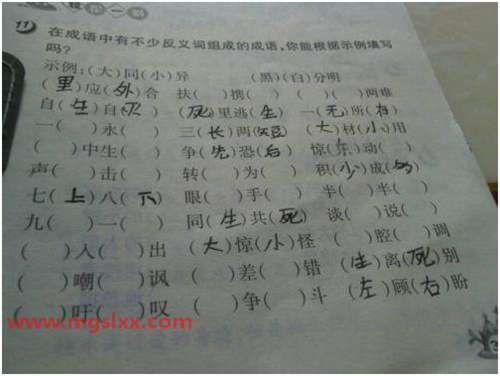 11、在成语中有不少反义词组成的成语,你能根据示例填写
吗?
示例:(大)同(小)异 (黑)(白)分明
(里)应(外)合 扶( )携( ) ( )( )两难
自(生)自(灭) (死)里逃(生) 一(无)所(有)
一( )永( ) 三(长)两(短) (大)材(小)用
( )中生( ) 争(先)恐(后) 惊( )动( )
声( )击( ) 转( )为( ) 积(小)成( )
七(上)八(下) 眼( )手( ) 半( )半( )
九( )一( ) 同(生)共(死) 谈( )说( )
( )入( )出 (大)惊(小)怪 ( )腔( )调
( )嘲( )讽 ( )差( )错 (生)离(死)别
( )吁( )叹 ( )争( )斗 (左)顾(右)盼
www.mgslxx.com